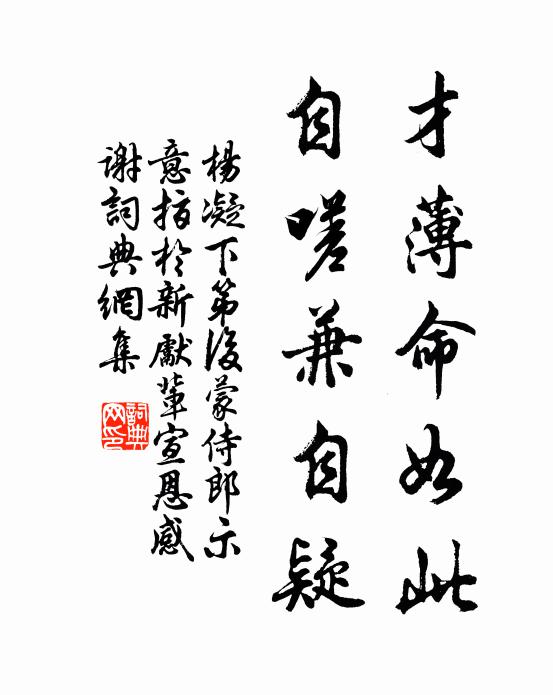 才薄命如此
自嗟兼自疑
楊凝下第後蒙侍郎示
意指於新獻輩宣恩感
謝詞典網集
詞典
网印